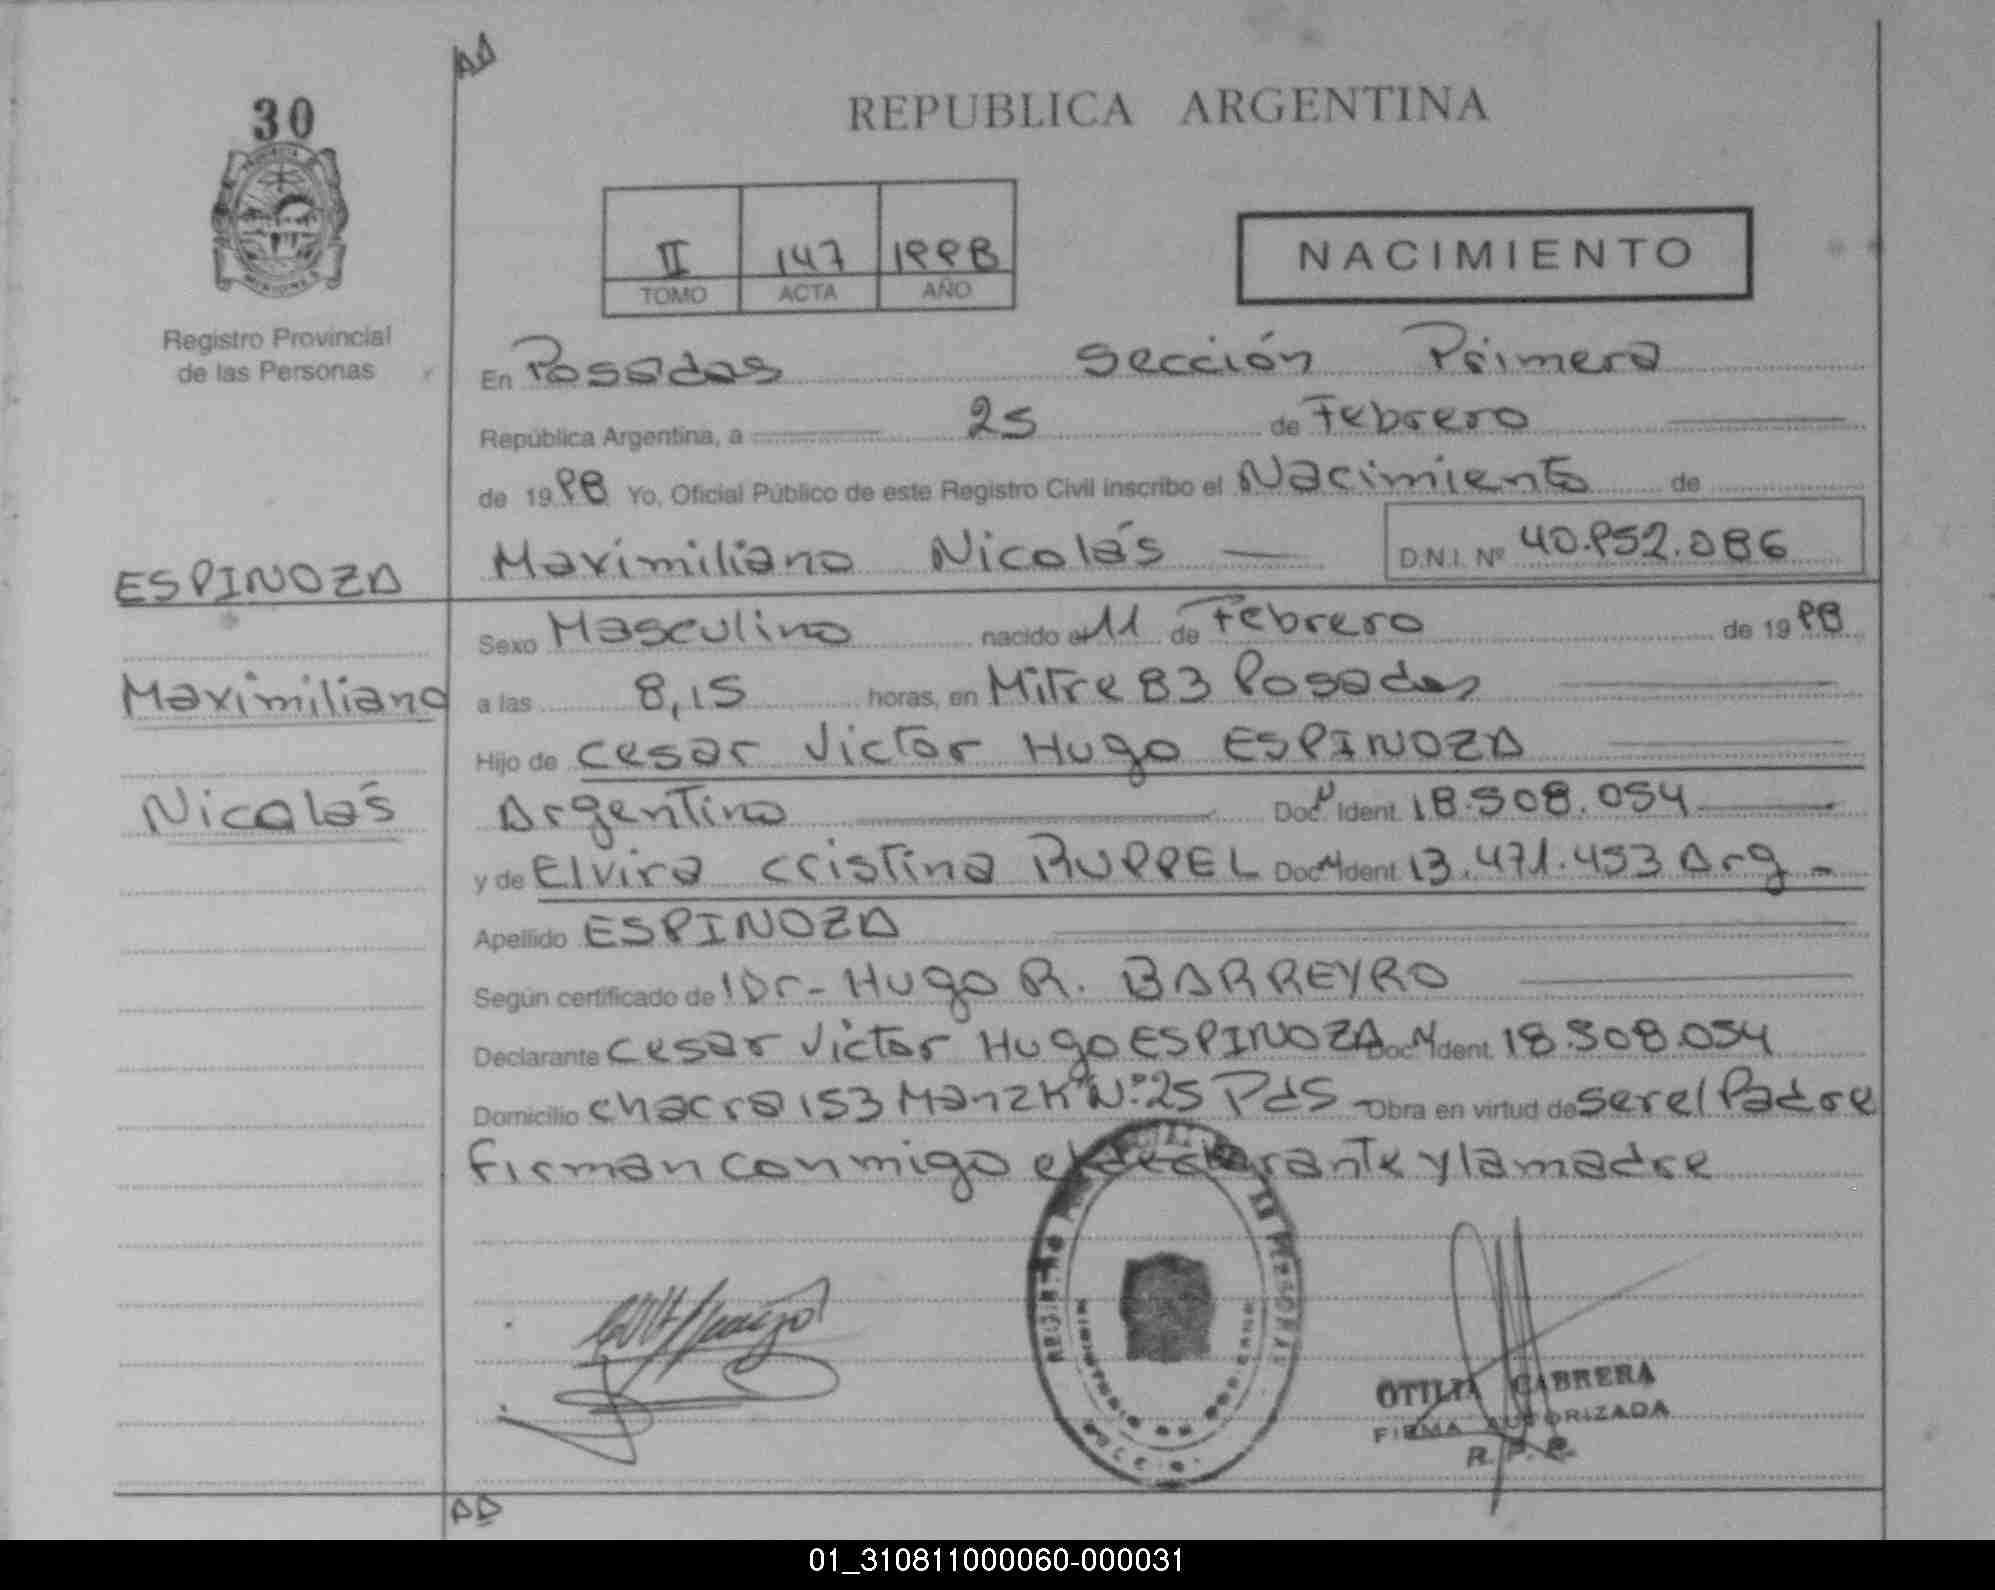 30
REPUBLICA ARGENTINA
II 147 1998
TOMO ACTA AÑO
NACIMIENTO
Registro Provincial
de las Personas
En Posadas Sección Primera
República Argentina, a 25 de Febrero
de 1998 Yo, Oficial Público de este Registro Civil inscribo el Nacimiento de
Maximiliano Nicolás D.N.I. Nº 40.952.086
ESPINOZA
Maximiliano
Nicolás
Sexo Masculino nacido el 11 de Febrero de 1998
a las 8,15 horas, en Mitre 83 Posadas
Hijo de Cesar Victor Hugo ESPINOZA
Argentino Doc. N Ident. 18.508.054
y de Elvira Cristina RUPPEL Doc. N Ident. 13.471.453 Arg
Apellido ESPINOZA
Según certificado de Dr. Hugo R. BARREYRO
Declarante Cesar Victor Hugo ESPINOZA Doc. N Ident. 18.508.054
Domicilio Chacra 153 Nº 25 Pdas Obra en virtud de ser el Padre
Firman conmigo el declarante y la madre
OTILIA CABRERA
FIRMA AUTORIZADA
R. P. P.
01_310811000060-000031